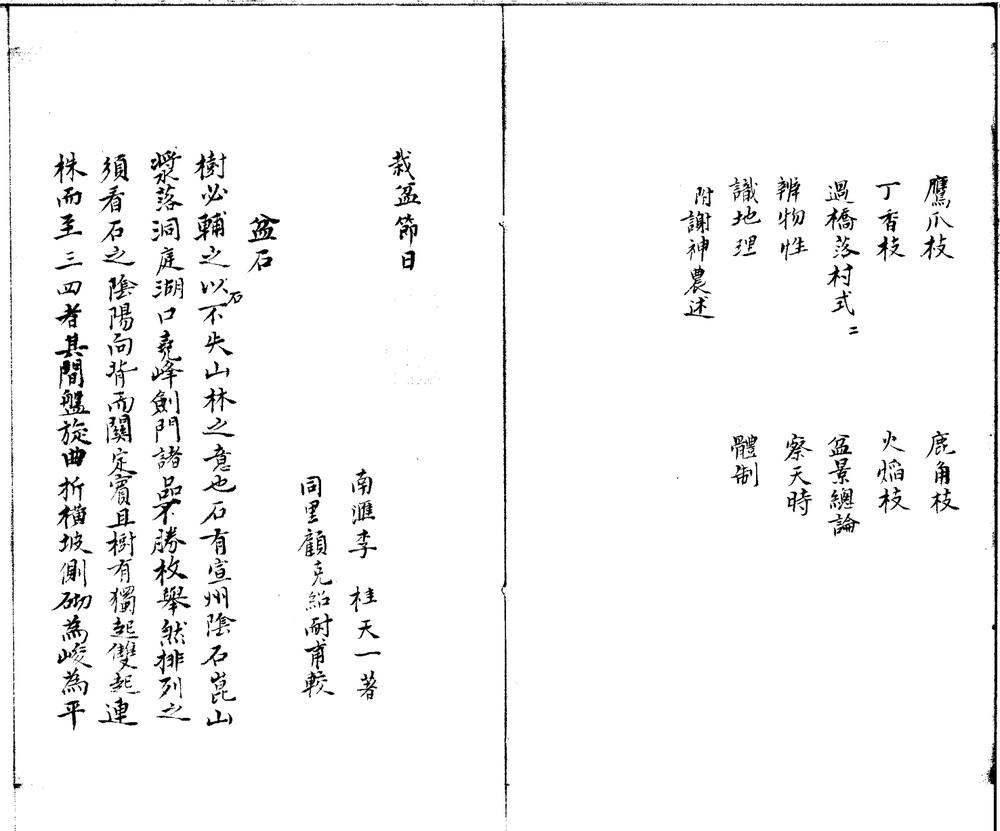 鷹爪枝 鹿角枝
丁香枝 火焰枝
過橋落村式二 盆景總論
辨物性 察天時
識地理 體制
附謝神農述
栽盆節目
南滙李 桂天一著
同里顧克紹耐甫較
盆石
樹必輔之以石不失山林之意也石有宣州陰石崑山
漿落洞庭湖口堯峰劍門諸品不勝枚舉然排列之
須看石之陰陽向背而關定賓且樹有獨起雙起連
株而至三四者其間盤旋曲折橫坡側砌為峻為平